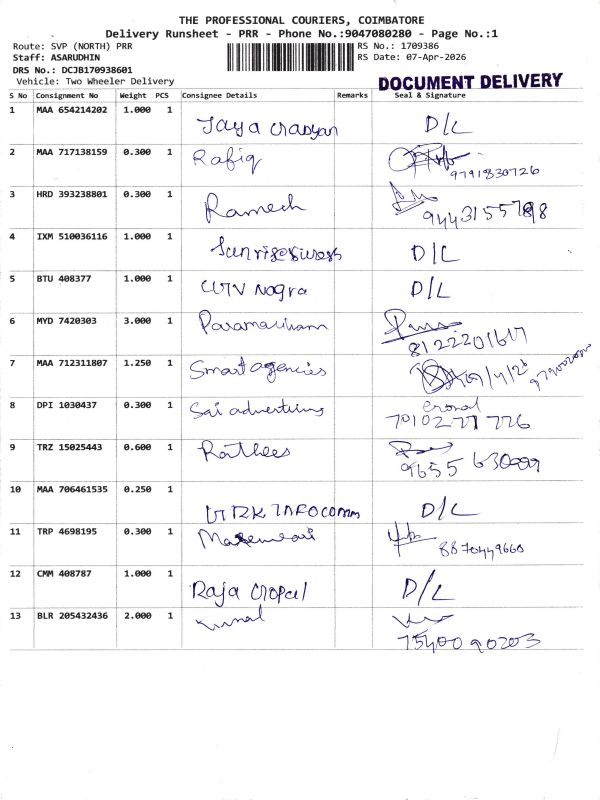 THE PROFESSIONAL COURIERS, COIMBATORE
Delivery Runsheet - PRR - Phone No.:9047080280 - Page No.:1
Route: SVP (NORTH) PRR
RS No.: 1709386
Staff: ASARUDHIN
RS Date: 07-Apr-2026
DRS No.: DCJB170938601
Vehicle: Two Wheeler Delivery
DOCUMENT DELIVERY
S No Consignment No Weight PCS Consignee Details Remarks Seal & Signature
1 MAA 654214202 1.000 1 Jaya D/L
2 MAA 717138159 0.300 1 Rafiq 9791830726
3 HRD 393238801 0.300 1 Ramesh
4 IXM 510036116 1.000 1 D/L
5 BTU 408377 1.000 1 D/L
6 MYD 7420303 3.000 1 8122201617
7 MAA 712311807 1.250 1 Smart agencies
8 DPI 1030437 0.300 1 Sai advertising
9 TRZ 15025443 0.600 1 Rathees 9655
10 MAA 706461535 0.250 1 INFOCOMM D/L
11 TRP 4698195 0.300 1
12 CMM 408787 1.000 1 Raja Gopal D/L
13 BLR 205432436 2.000 1